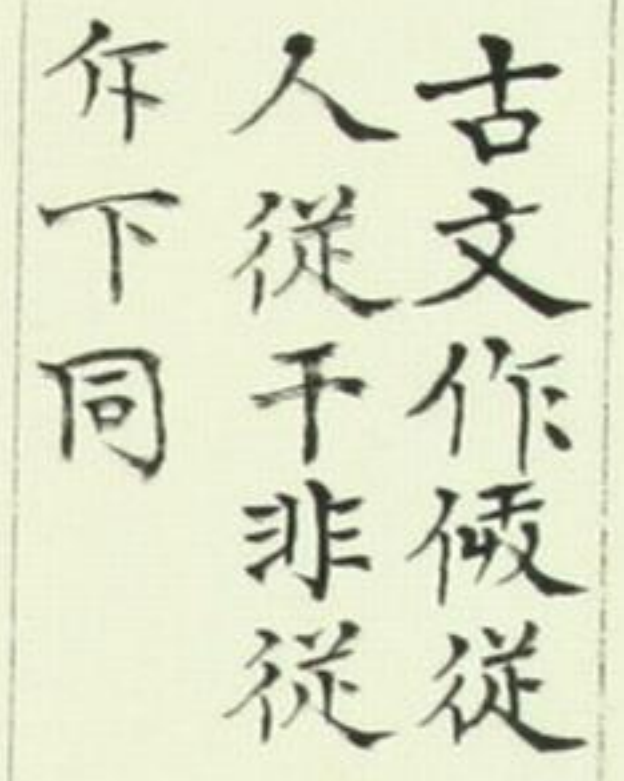 古文作從
人從干非從
下同